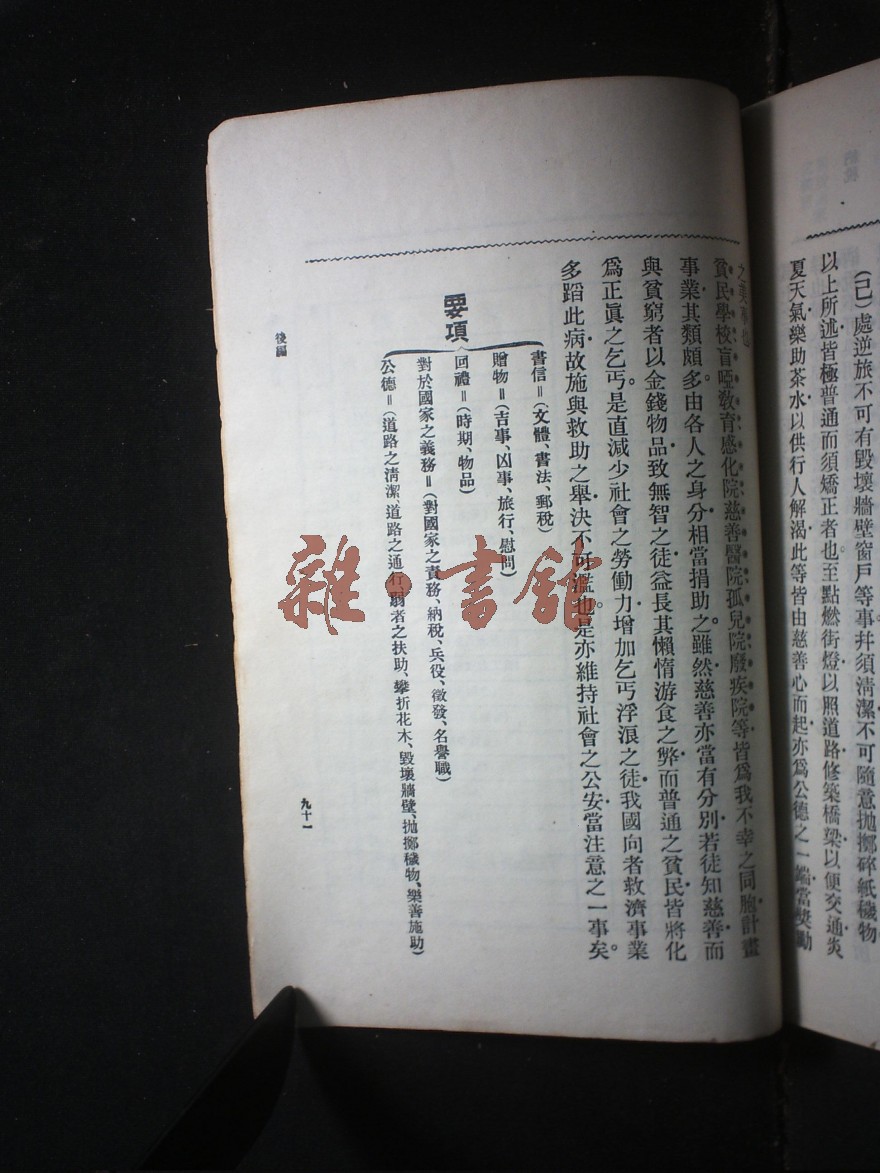 (己)處逆旅不可有毀壞牆壁窗戶等事幷須清潔不可隨意拋擲碎紙穢物
以上所述皆極普通而須矯正者也。至點燃街燈以照道路修築橋梁以便交通炎
夏天氣樂助茶水以供行人解渴此等皆由慈善心而起亦爲公德之一端當獎勵
之美事也
貧民學校盲啞教育感化院慈善醫院孤兒院廢疾院等皆爲我不幸之同胞計畫
事業其類頗多由各人之身分相當捐助之。雖然慈善亦當有分別若徒知慈善而
與貧窮者以金錢物品致無智之徒益長其懶惰游食之弊而普通之貧民皆將化
爲正眞之乞丐。是直減少社會之勞働力增加乞丐浮浪之徒我國向者救濟事業
多蹈此病故施與救助之舉決不可濫也。是亦維持社會之公安當注意之一事矣。
要項
書信=(文體、書法、郵稅)
贈物=(吉事、凶事、旅行、慰問)
回禮=(時期、物品)
對於國家之義務=(對國家之責務、納稅、兵役、徵發、名譽職)
公德=(道路之清潔、道路之通行、弱者之扶助、攀折花木、毀壞牆壁、拋擲穢物、樂善施助)
後編
九十一
雜·書館